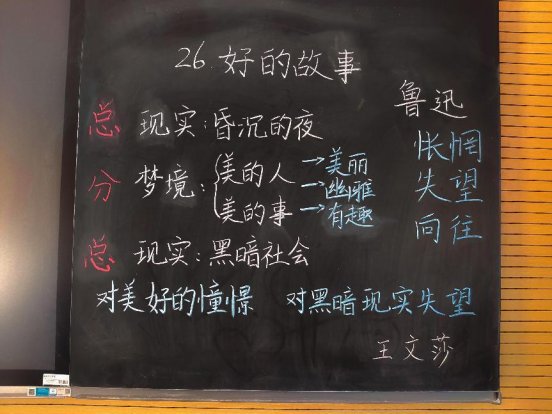 26.好的故事
鲁迅
总 现实:昏沉的夜
怅惘
分 梦境:
美的人→美丽
→幽雅
美的事→有趣
失望
向往
总 现实:黑暗社会
对美好的憧憬 对黑暗现实失望
王文莎